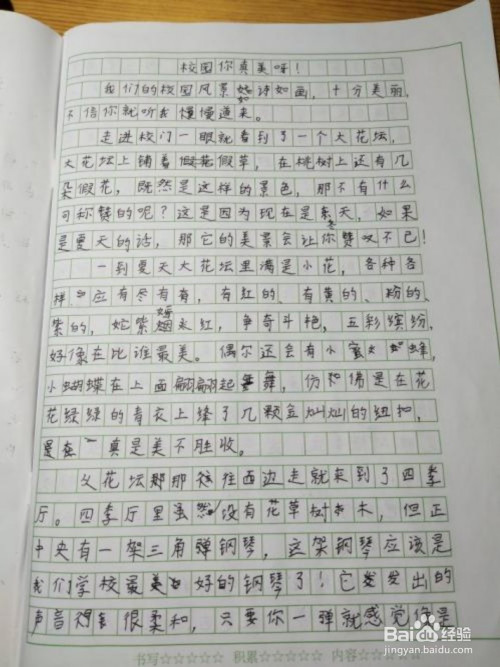 校园你真美呀！
我们的校园风景如诗如画，十分美丽，
不信你就听我慢慢道来。
走进校门一眼就看到了一个大花坛，
大花坛上铺着假草，在桃树上还有几
朵假花，既然是这样的景色，那不有什么
可称赞的呢？这是因为现在是冬天，如果
是夏天的话，那它的美景会让你赞叹不已！
一到夏天大花坛里满是小花，各种各
样，应有尽有，有红的、有黄的、粉的、
紫的，姹紫嫣红，争奇斗艳，五彩缤纷，
好像在比谁最美。偶尔还会有小蜜蜂，
小蝴蝶在上面翩翩起舞，仿佛是在花
花绿绿的青衣上缝了几颗金灿灿的纽扣，
真是美不胜收。
从花坛那往西边走就来到了四季
厅。四季厅里虽然没有花草树木，但正
中央有一架三角弹钢琴，这架钢琴应该是
我们学校最好的钢琴了！它发出的
声音很柔和，只要你一弹就感觉像是
书写☆☆☆☆☆ 积累☆☆☆☆☆ 内容
Baidu经验
jingyan.baidu.com